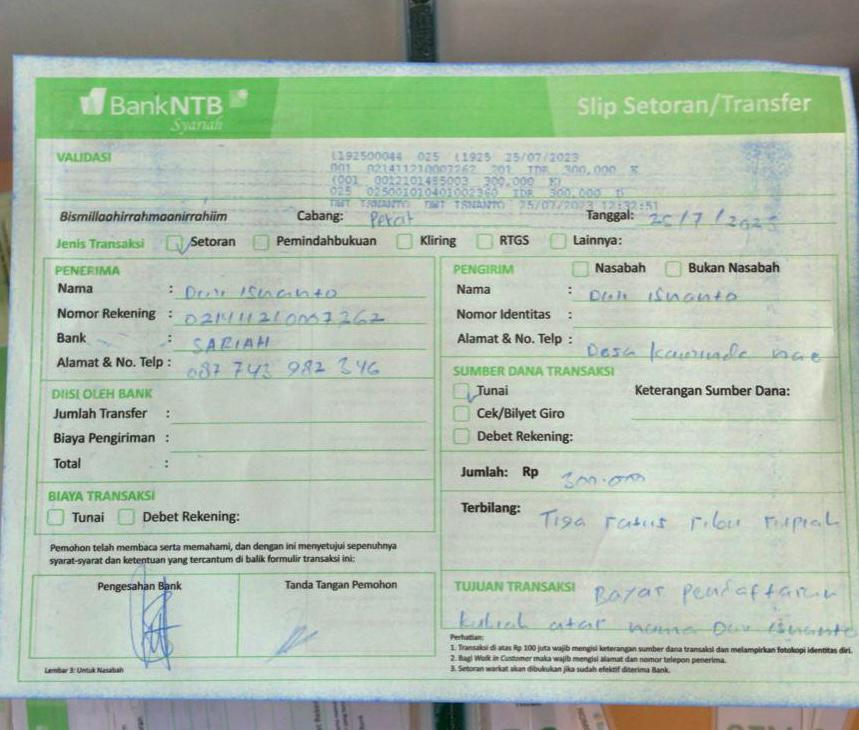 BankNTB
Syariah
Slip Setoran/Transfer
VALIDASI
025 25/07/2023
001 300,000
300,000
025 300,000
25/07/2023
Bismillaahirrahmaanirrahiim Cabang: Pekat Tanggal: 25/7/2023
Jenis Transaksi Setoran Pemindahbukuan Kliring RTGS Lainnya:
PENERIMA
Nama :
Nomor Rekening :
Bank : SARIAH
Alamat & No. Telp : 087 743 982 346
DIISI OLEH BANK
Jumlah Transfer :
Biaya Pengiriman :
Total :
BIAYA TRANSAKSI
Tunai Debet Rekening:
Pemohon telah membaca serta memahami, dan dengan ini menyetujui sepenuhnya
syarat-syarat dan ketentuan yang tercantum di balik formulir transaksi ini:
Pengesahan Bank Tanda Tangan Pemohon
Lembar 3: Untuk Nasabah
PENGIRIM Nasabah Bukan Nasabah
Nama :
Nomor Identitas :
Alamat & No. Telp : Desa nae
SUMBER DANA TRANSAKSI
Tunai Keterangan Sumber Dana:
Cek/Bilyet Giro
Debet Rekening:
Jumlah: Rp 300.000
Terbilang: Tiga ratus ribu rupiah
TUJUAN TRANSAKSI Bayar pendaftaran
kuliah atas nama
Perhatian:
1. Transaksi di atas Rp 100 juta wajib mengisi keterangan sumber dana transaksi dan melampirkan fotokopi identitas diri.
2. Bagi Walk in Customer maka wajib mengisi alamat dan nomor telepon penerima.
3. Setoran warkat akan dibukukan jika sudah efektif diterima Bank.